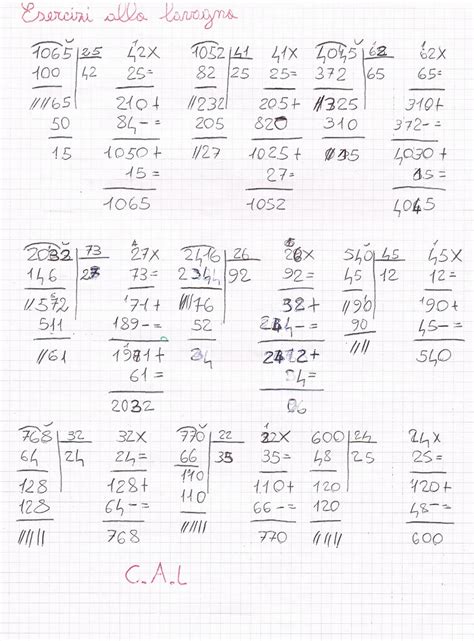 Esercizi alla lavagna
1065 25 42X 1052 41 41X 4045 62 62X
100 42 25= 82 25 25= 372 65 65=
////65 210+ //232 205+ //325 310+
50 84-= 205 820 310 372-=
15 1050+ //27 1025+ //15 4030+
15= 27= 15=
1065 1052 4045
2032 73 27X 2416 26 26X 540 45 45X
146 27 73= 92 92= 45 12 12=
//572 71+ ////76 //90 90+
511 189-= 52 90 45-=
//61 24 //// 540
61=
2032
768 32 32X 770 22 22X 600 24 24X
64 24 24= 66 35 35= 48 25 25=
128 128+ 110 110+ 120 120+
128 64-= 110 66-= 120 48-=
////// 768 ////// 770 ////// 600
C.A.L